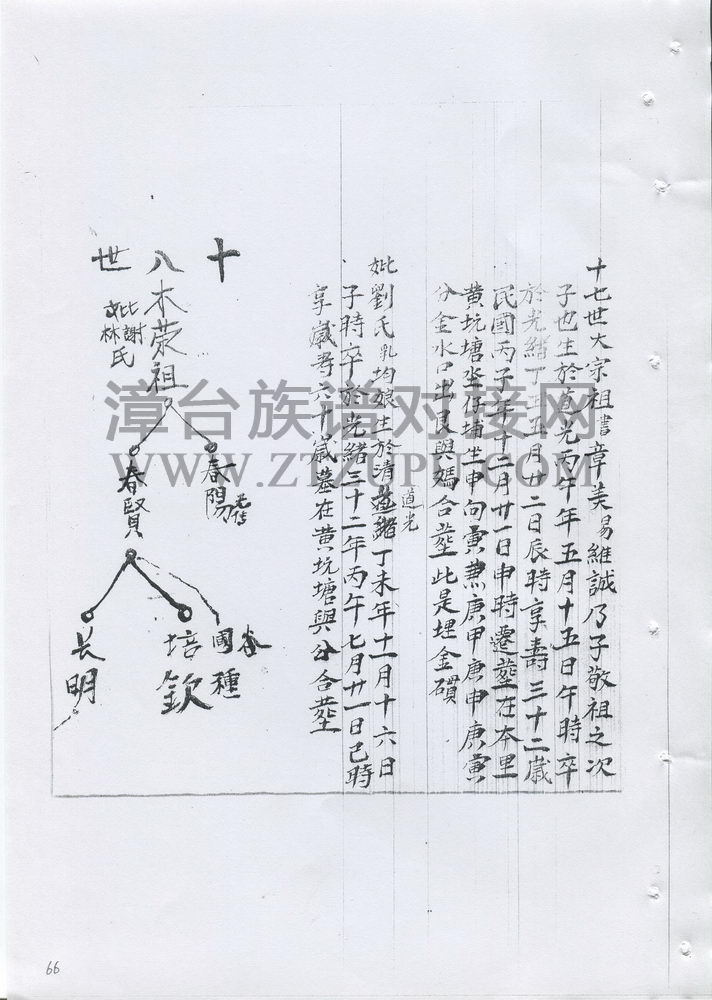 十七世大宗祖書章美易維誠乃子敬祖之次
子也生於道光丙午年五月十五日午時卒
於光緒丁丑五月廿二日辰時享壽三十二歲
民國丙子年十二月廿一日申時遷塟在本里
黄坑塘坐仔埔坐申向寅兼庚甲庚申庚寅
分金水口出艮與媽合塟此是埋金礩
道光
妣劉氏乳均娘生於清道緒丁未年十一月十六日
子時卒於光緒三十二年丙午七月廿一日己時
享歲壽六十歲墓在黄坑塘與公合塟
十八世
木荣祖
妣謝林氏
春陽
春賢
國種
培欽
长明
漳台族谱对接网
WWW.ZTZUPU.COM
66